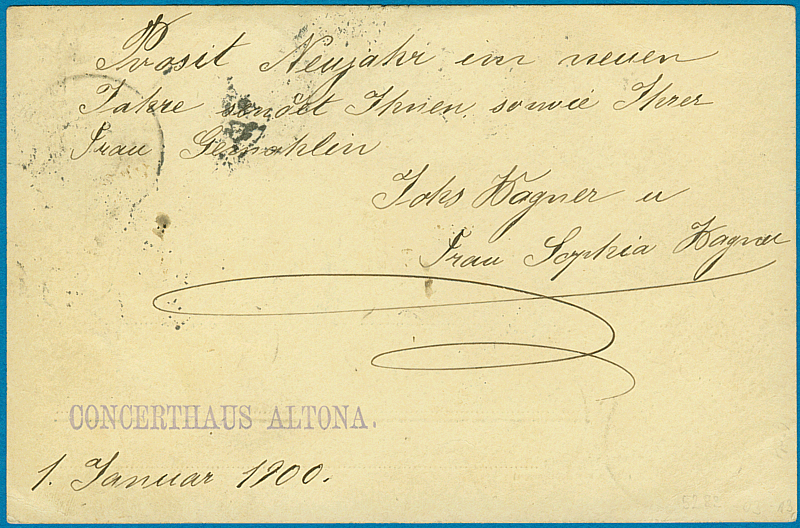 Prosit Neujahr im neuen
Jahre sendet Ihnen sowie Ihrer
Frau Gemahlin
Johs Wagner u
Frau Sophia Wagner
CONCERTHAUS ALTONA.
1. Januar 1900.